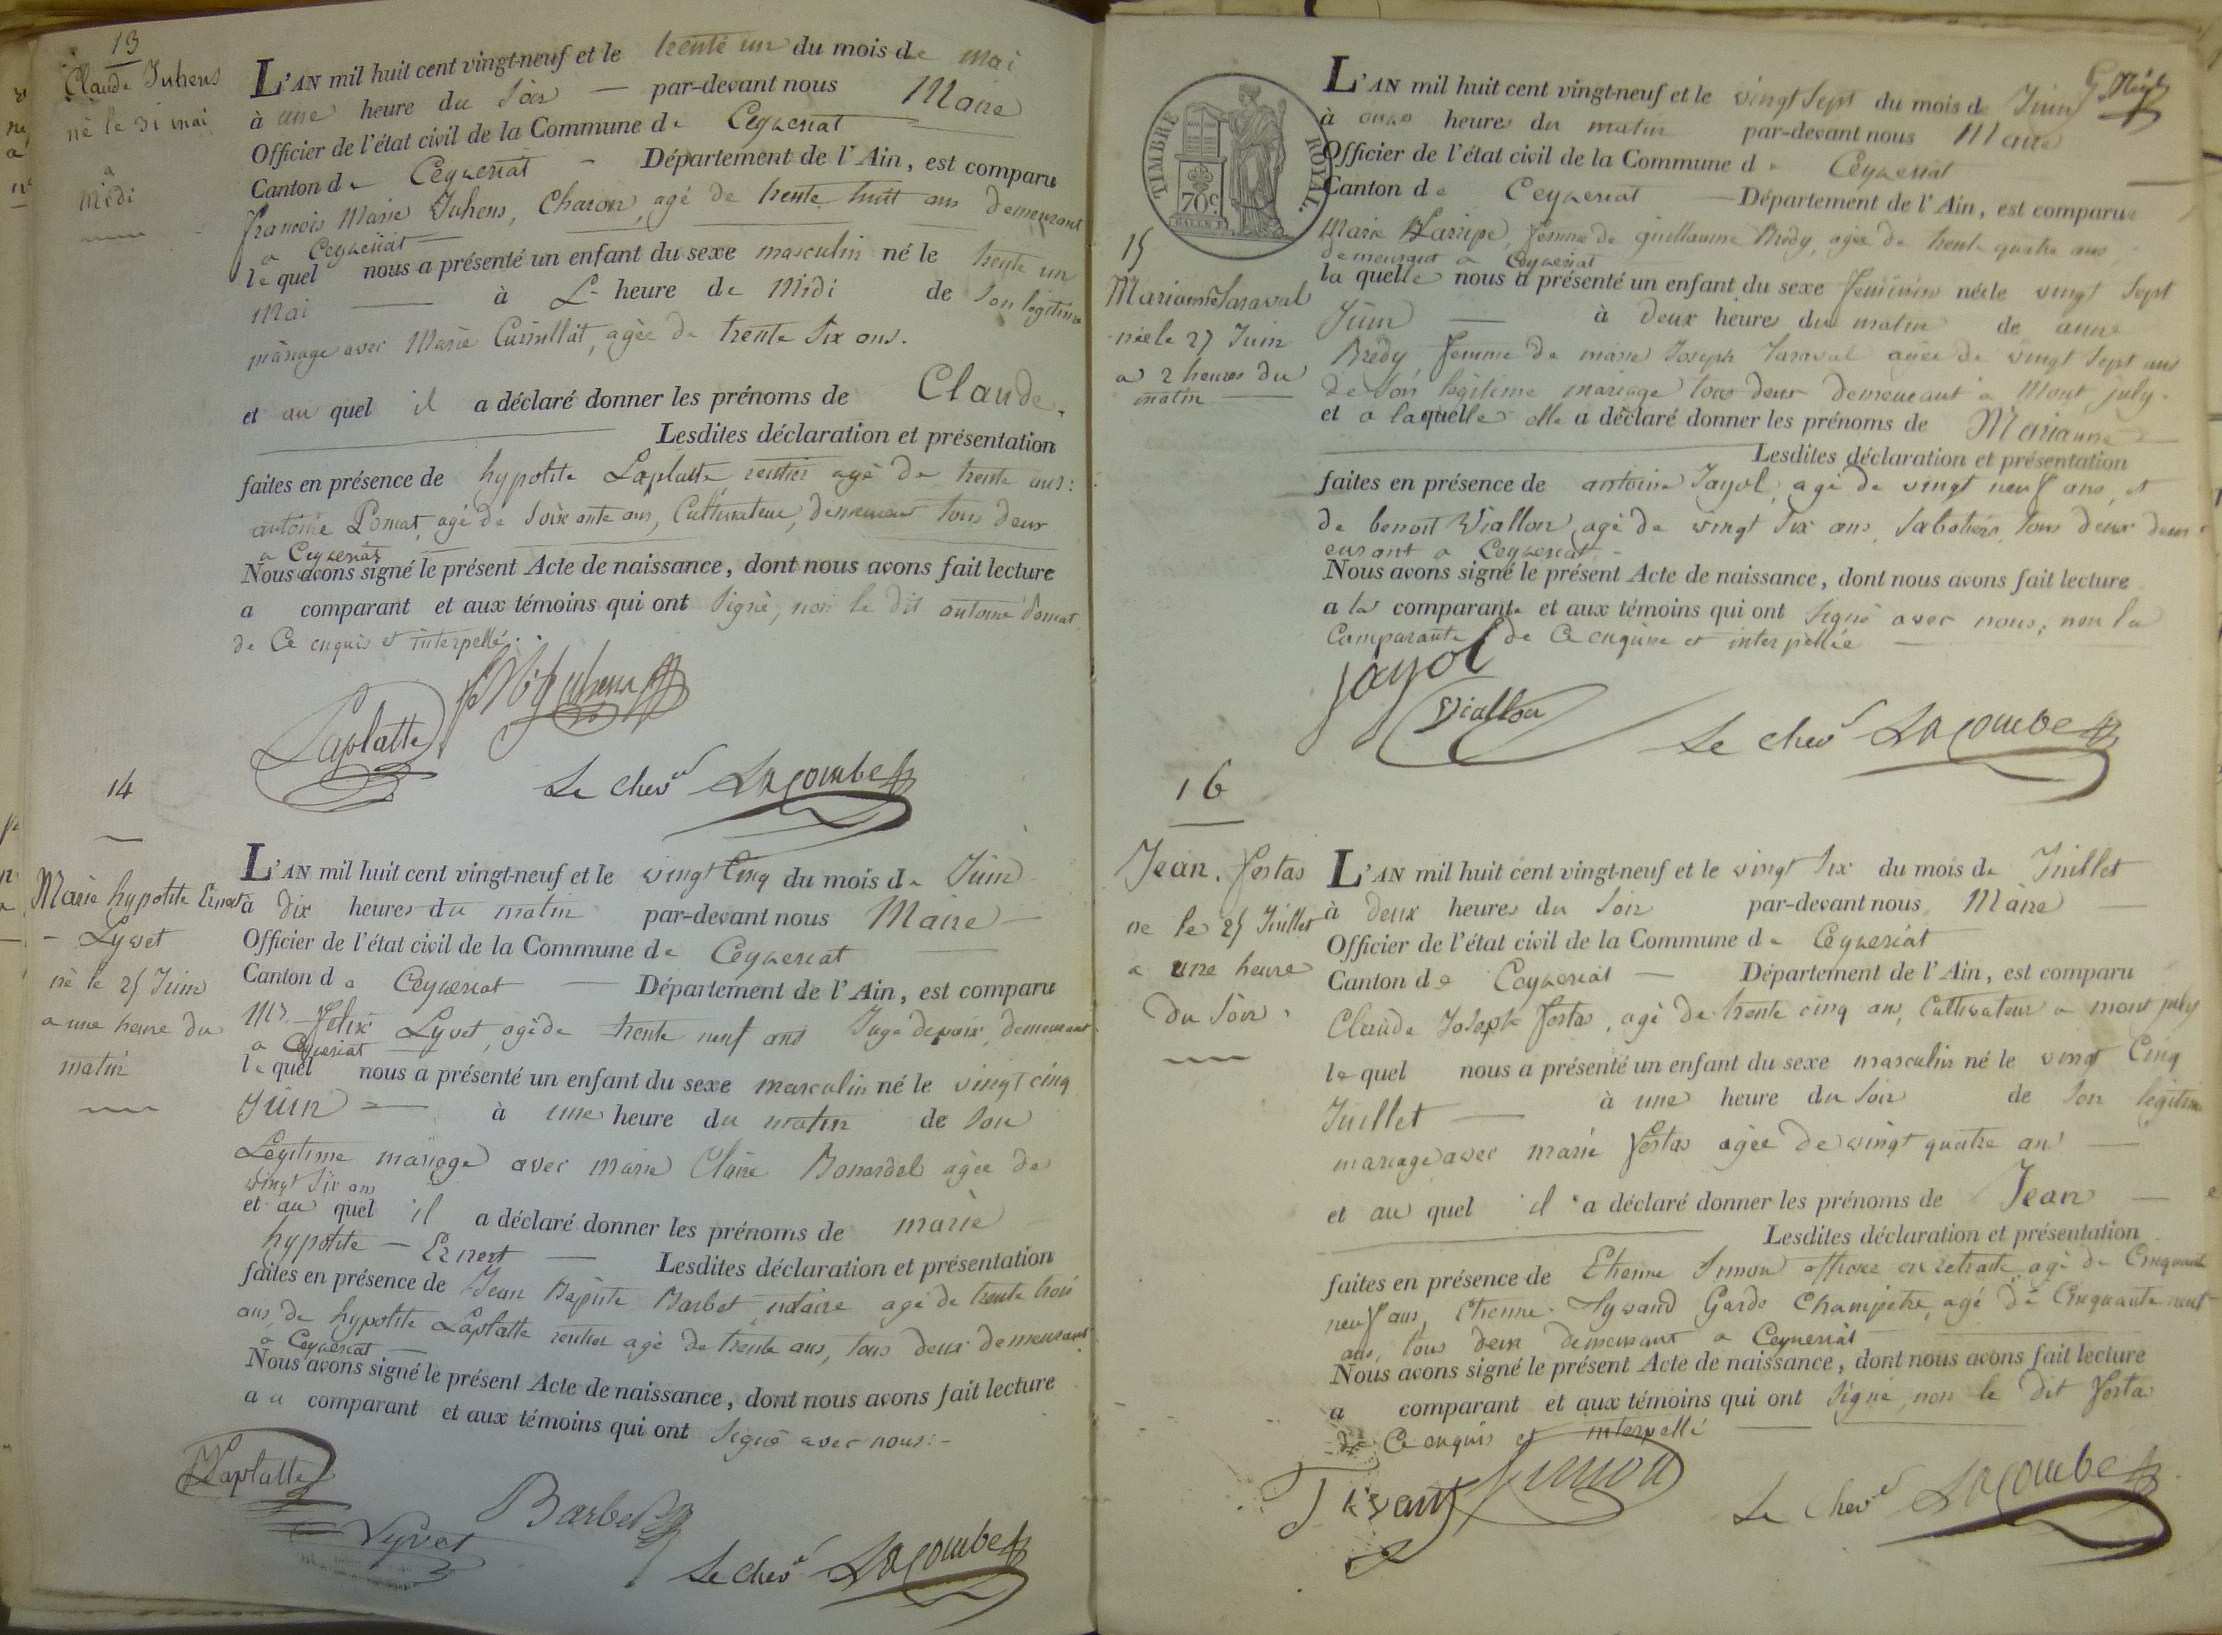 13
Claude Juhens
né le 31 mai
a
midi
L'AN mil huit cent vingt-neuf et le trente un du mois de mai
à une heure du soir — par-devant nous Maire
Officier de l'état civil de la Commune de Ceyzeriat
Canton de Ceyzeriat — Département de l'Ain, est comparu
françois Marie Juhens, Charon, agé de trente huit ans demeurant
a Ceyzeriat —
le quel nous a présenté un enfant du sexe masculin né le trente un
Mai — à L heure de Midi de son légitime
mariage avec Marie agée de trente six ans.
et au quel il a déclaré donner les prénoms de Claude.
Lesdites déclaration et présentation
faites en présence de hypolite Laplatte rentier agé de trente ans:
antoine Pomat, agé de soixante ans, Cultivateur, demeurant tous deux
a Ceyzeriat
Nous avons signé le présent Acte de naissance, dont nous avons fait lecture
a comparant et aux témoins qui ont signé, non le dit antoine Pomat
de Ce enquis et interpellé.
Laplatte
Le Chev Lacombe
14
Marie hypolite Ernest
- Lyvet
né le 25 Juin
a une heure du
matin
L'AN mil huit cent vingt-neuf et le vingt Cinq du mois de Juin
à dix heures du matin par-devant nous Maire —
Officier de l'état civil de la Commune de Ceyzeriat
Canton de Ceyzeriat — Département de l'Ain, est comparu
Mr Felix Lyvet, agé de trente neuf ans Juge de paix, demeurant
a Ceyzeriat
le quel nous a présenté un enfant du sexe masculin né le vingt cinq
Juin — à une heure du matin de son
Légitime mariage avec Marie Claire Bonardel agée de
vingt six ans
et au quel il a déclaré donner les prénoms de marie
hypolite — Ernest — Lesdites déclaration et présentation
faites en présence de Jean Baptiste Barbet notaire agé de trente trois
ans, de hypolite Laplatte rentier agé de trente ans, tous deux demeurant
a Ceyzeriat
Nous avons signé le présent Acte de naissance, dont nous avons fait lecture
au comparant et aux témoins qui ont signé avec nous: -
Laplatte
Barbet
Lyvet
Le Chev Lacombe
TIMBRE ROYAL.
70 c.
15
Marianne Saraval
née le 27 Juin
a 2 heures du
matin
L'AN mil huit cent vingt-neuf et le vingt sept du mois de Juin
à onze heures du matin par-devant nous Maire
Officier de l'état civil de la Commune de Ceyzeriat
Canton de Ceyzeriat — Département de l'Ain, est comparue
Marie femme de guillaume Brédy, agée de trente quatre ans
demeurant a Ceyzeriat
la quelle nous a présenté un enfant du sexe feminin née le vingt sept
Juin — à deux heures du matin de anne
Brédy femme de marie Joseph Saraval agée de vingt sept ans
de son légitime mariage tous deux demeurant a Mont july.
et a laquelle elle a déclaré donner les prénoms de Marianne —
Lesdites déclaration et présentation
faites en présence de antoine Jayol, agé de vingt neuf ans, et
de benoit Viallon, agé de vingt six ans, sabotiers, tous deux dem-
eurant a Ceyzeriat -
Nous avons signé le présent Acte de naissance, dont nous avons fait lecture
a la comparante et aux témoins qui ont signé avec nous; non la
Comparante de Ce enquise et interpellée —
jayol
Viallon
Le Chev Lacombe
16
Jean. fertas
né le 25 Juillet
a une heure
Du Soir.
L'AN mil huit cent vingt-neuf et le vingt six du mois de Juillet
à deux heures du soir par-devant nous Maire —
Officier de l'état civil de la Commune de Ceyzeriat
Canton de Ceyzeriat — Département de l'Ain, est comparu
Claude Joseph fertas, agé de trente cinq ans, Cultivateur a mont july
le quel nous a présenté un enfant du sexe masculin né le vingt Cinq
Juillet — à une heure du soir de son légitime
mariage avec marie fertas agée de vingt quatre ans —
et au quel il a déclaré donner les prénoms de Jean —
Lesdites déclaration et présentation
faites en présence de Etienne Simon officier en retraite agé de Cinquante
neuf ans, etienne Garde Champetre, agé de Cinquante neuf
ans, tous deux demeurant a Ceyzeriat
Nous avons signé le présent Acte de naissance, dont nous avons fait lecture
a comparant et aux témoins qui ont signé, non le dit fertas
de Ce enquis et interpellé
Simon
Le Chev Lacombe